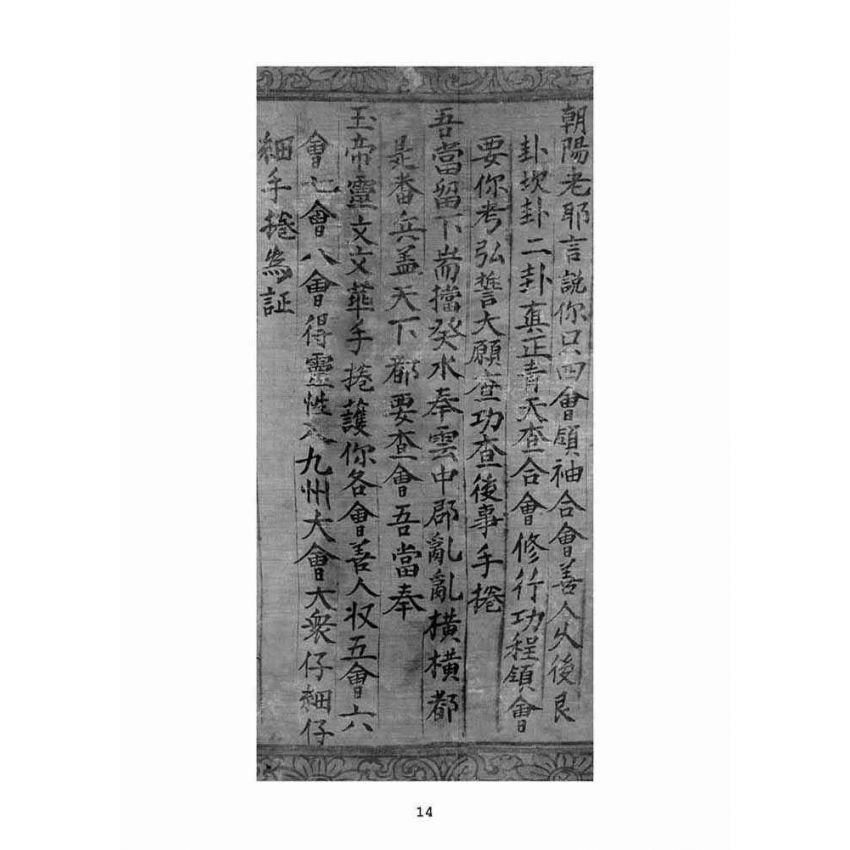 朝陽老耶言說你只四會領袖合會善人久後艮
卦坎卦二卦真正青天查合會修行功程領會
要你考弘誓大願查功查後事手捲
吾當留下耑擋癸水奉雲中郡亂亂橫橫都
是番兵盖天下都要查會吾當奉
玉帝靈文文華手捲護你各會善人収五會六
會七會八會得靈性入九州大會大衆仔細仔
細手捲為証
14